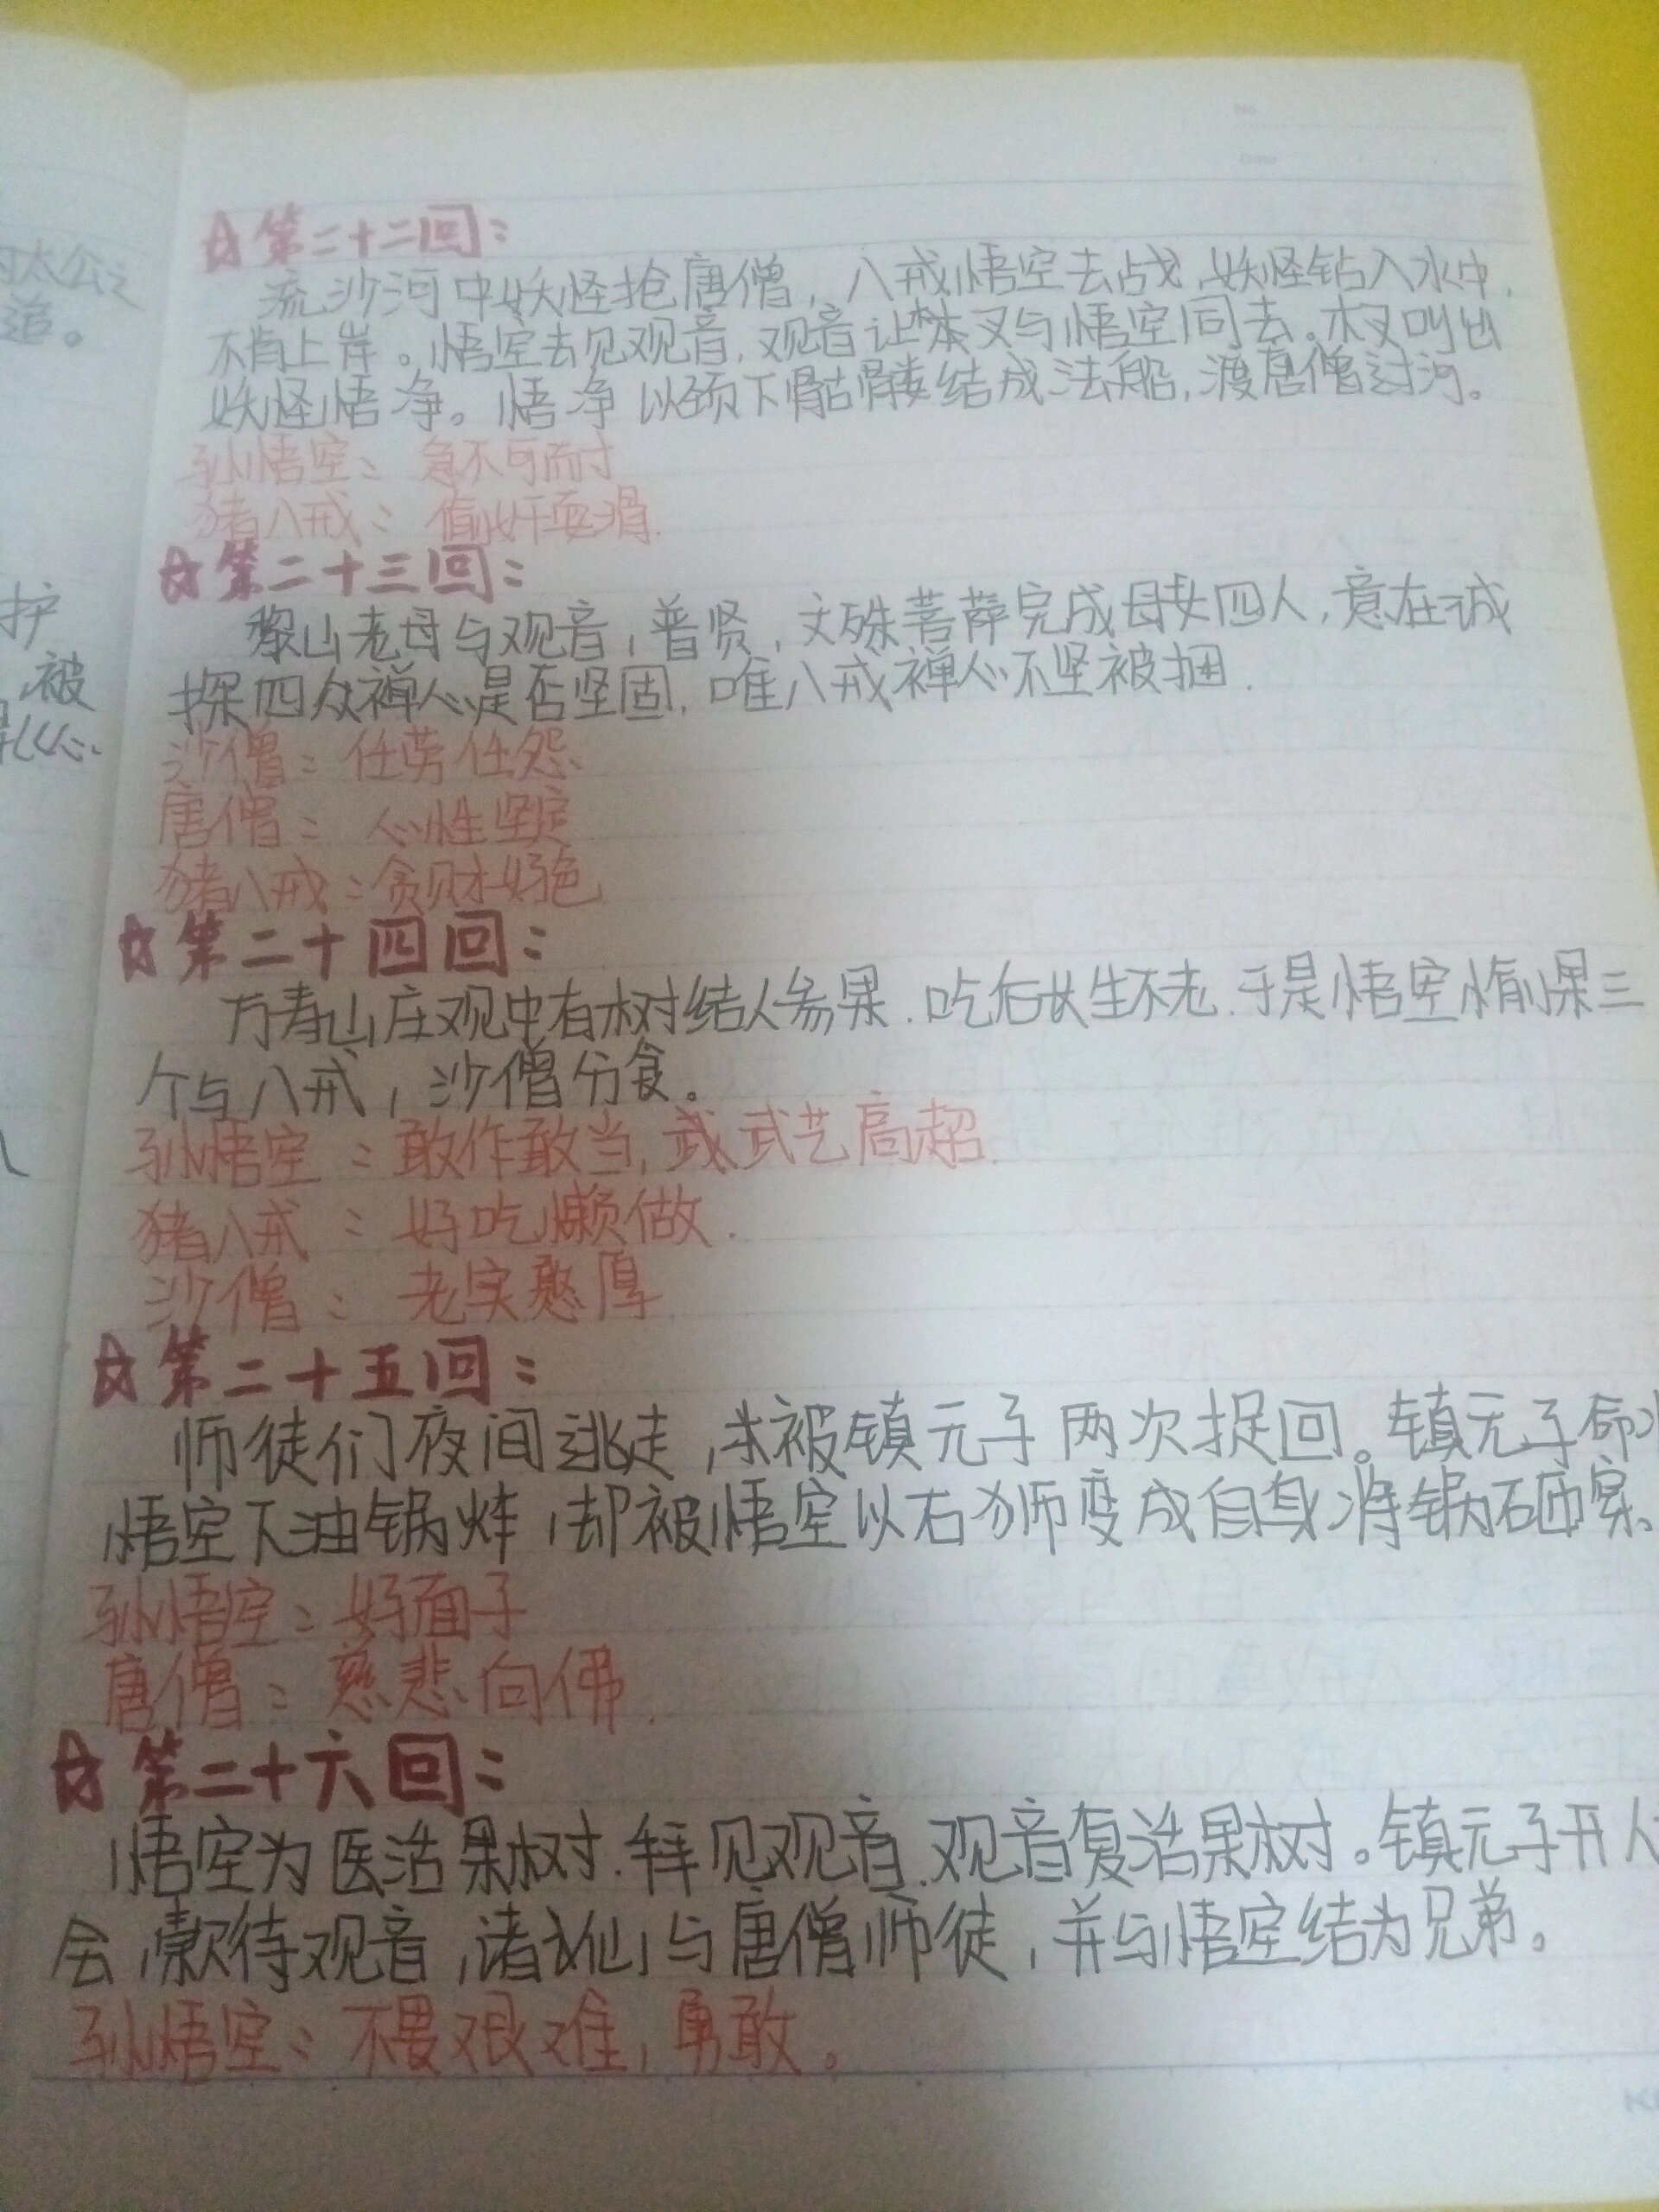 No
Date
的太公之
追。
护
被
☆第二十二回：
流沙河中妖怪抢唐僧，八戒悟空去战，妖怪钻入水中，
不肯上岸。悟空去见观音，观音让木叉与悟空同去。木叉叫出
妖怪悟净。悟净以颈下骷髅结成法船，渡唐僧过河。
孙悟空：急不可耐
猪八戒：偷奸耍滑.
☆第二十三回：
黎山老母与观音，普贤，文殊菩萨完成母女四人，意在诚
探四众禅心是否坚固，唯八戒禅心不坚被捆.
沙僧：任劳任怨
唐僧：心性坚定
猪八戒：贪财好色
☆第二十四回：
万寿山庄观中有树结人参果.吃后长生不老.于是悟空偷果三
个与八戒，沙僧分食。
孙悟空：敢作敢当，武艺高超.
猪八戒：好吃懒做.
沙僧：老实憨厚
☆第二十五回：
师徒们夜间逃走，被镇元子两次捉回。镇元子命
悟空下油锅炸，却被悟空以石狮变成自身将锅砸
孙悟空：好面子
唐僧：慈悲向佛.
☆第二十六回：
悟空为医活果树.拜见观音.观音复活果树。镇元子开人
会，款待观音，诸仙与唐僧师徒，并与悟空结为兄弟。
孙悟空：不畏艰难，勇敢。